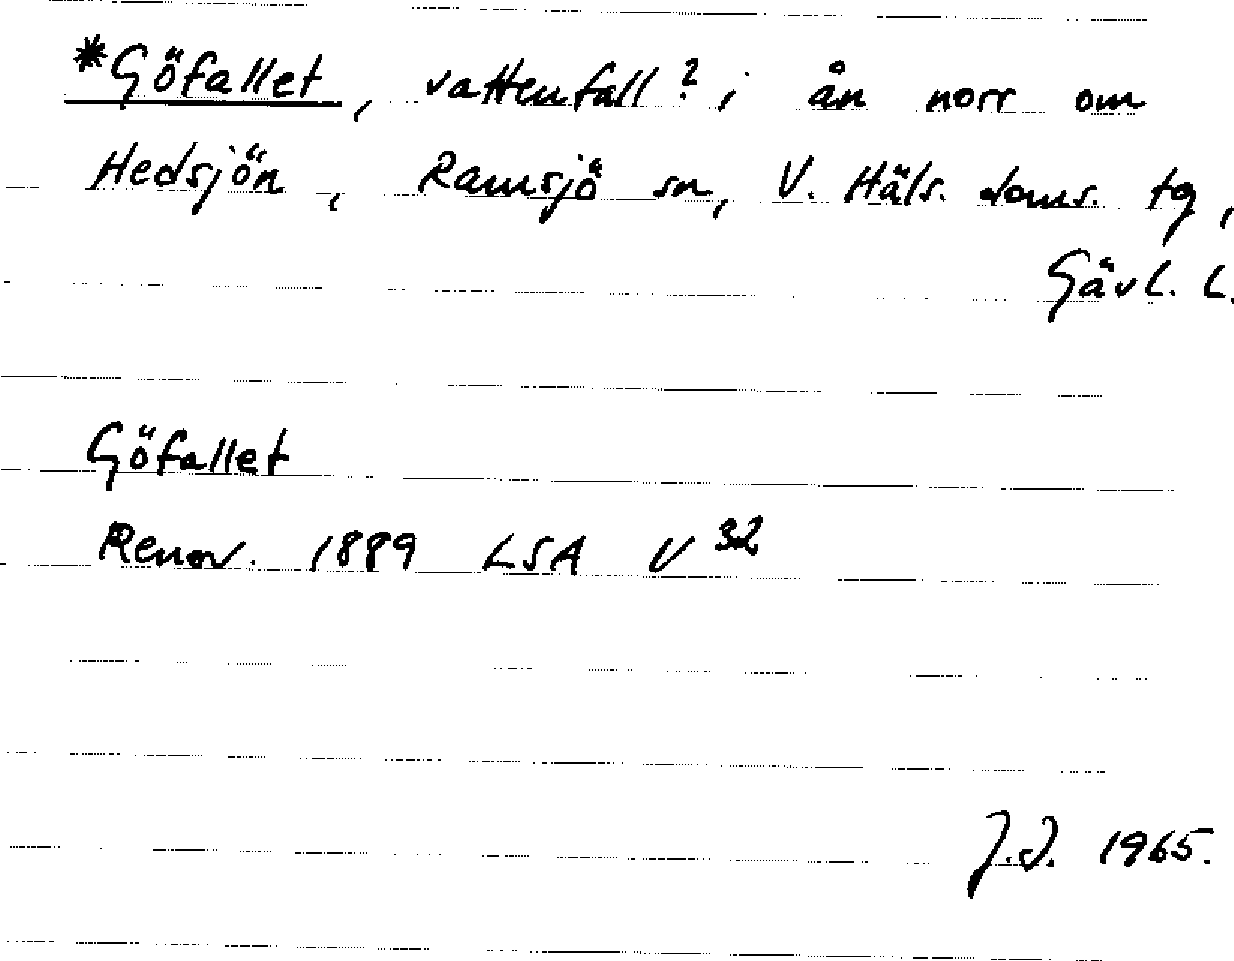 *Göfallet, vattenfall? i ån norr om
Hedsjön, Ramsjö sn, V. Häls. doms. tg,
Gävl. L.
Göfallet
Renov. 1889 LSA V 32
J.J. 1965.